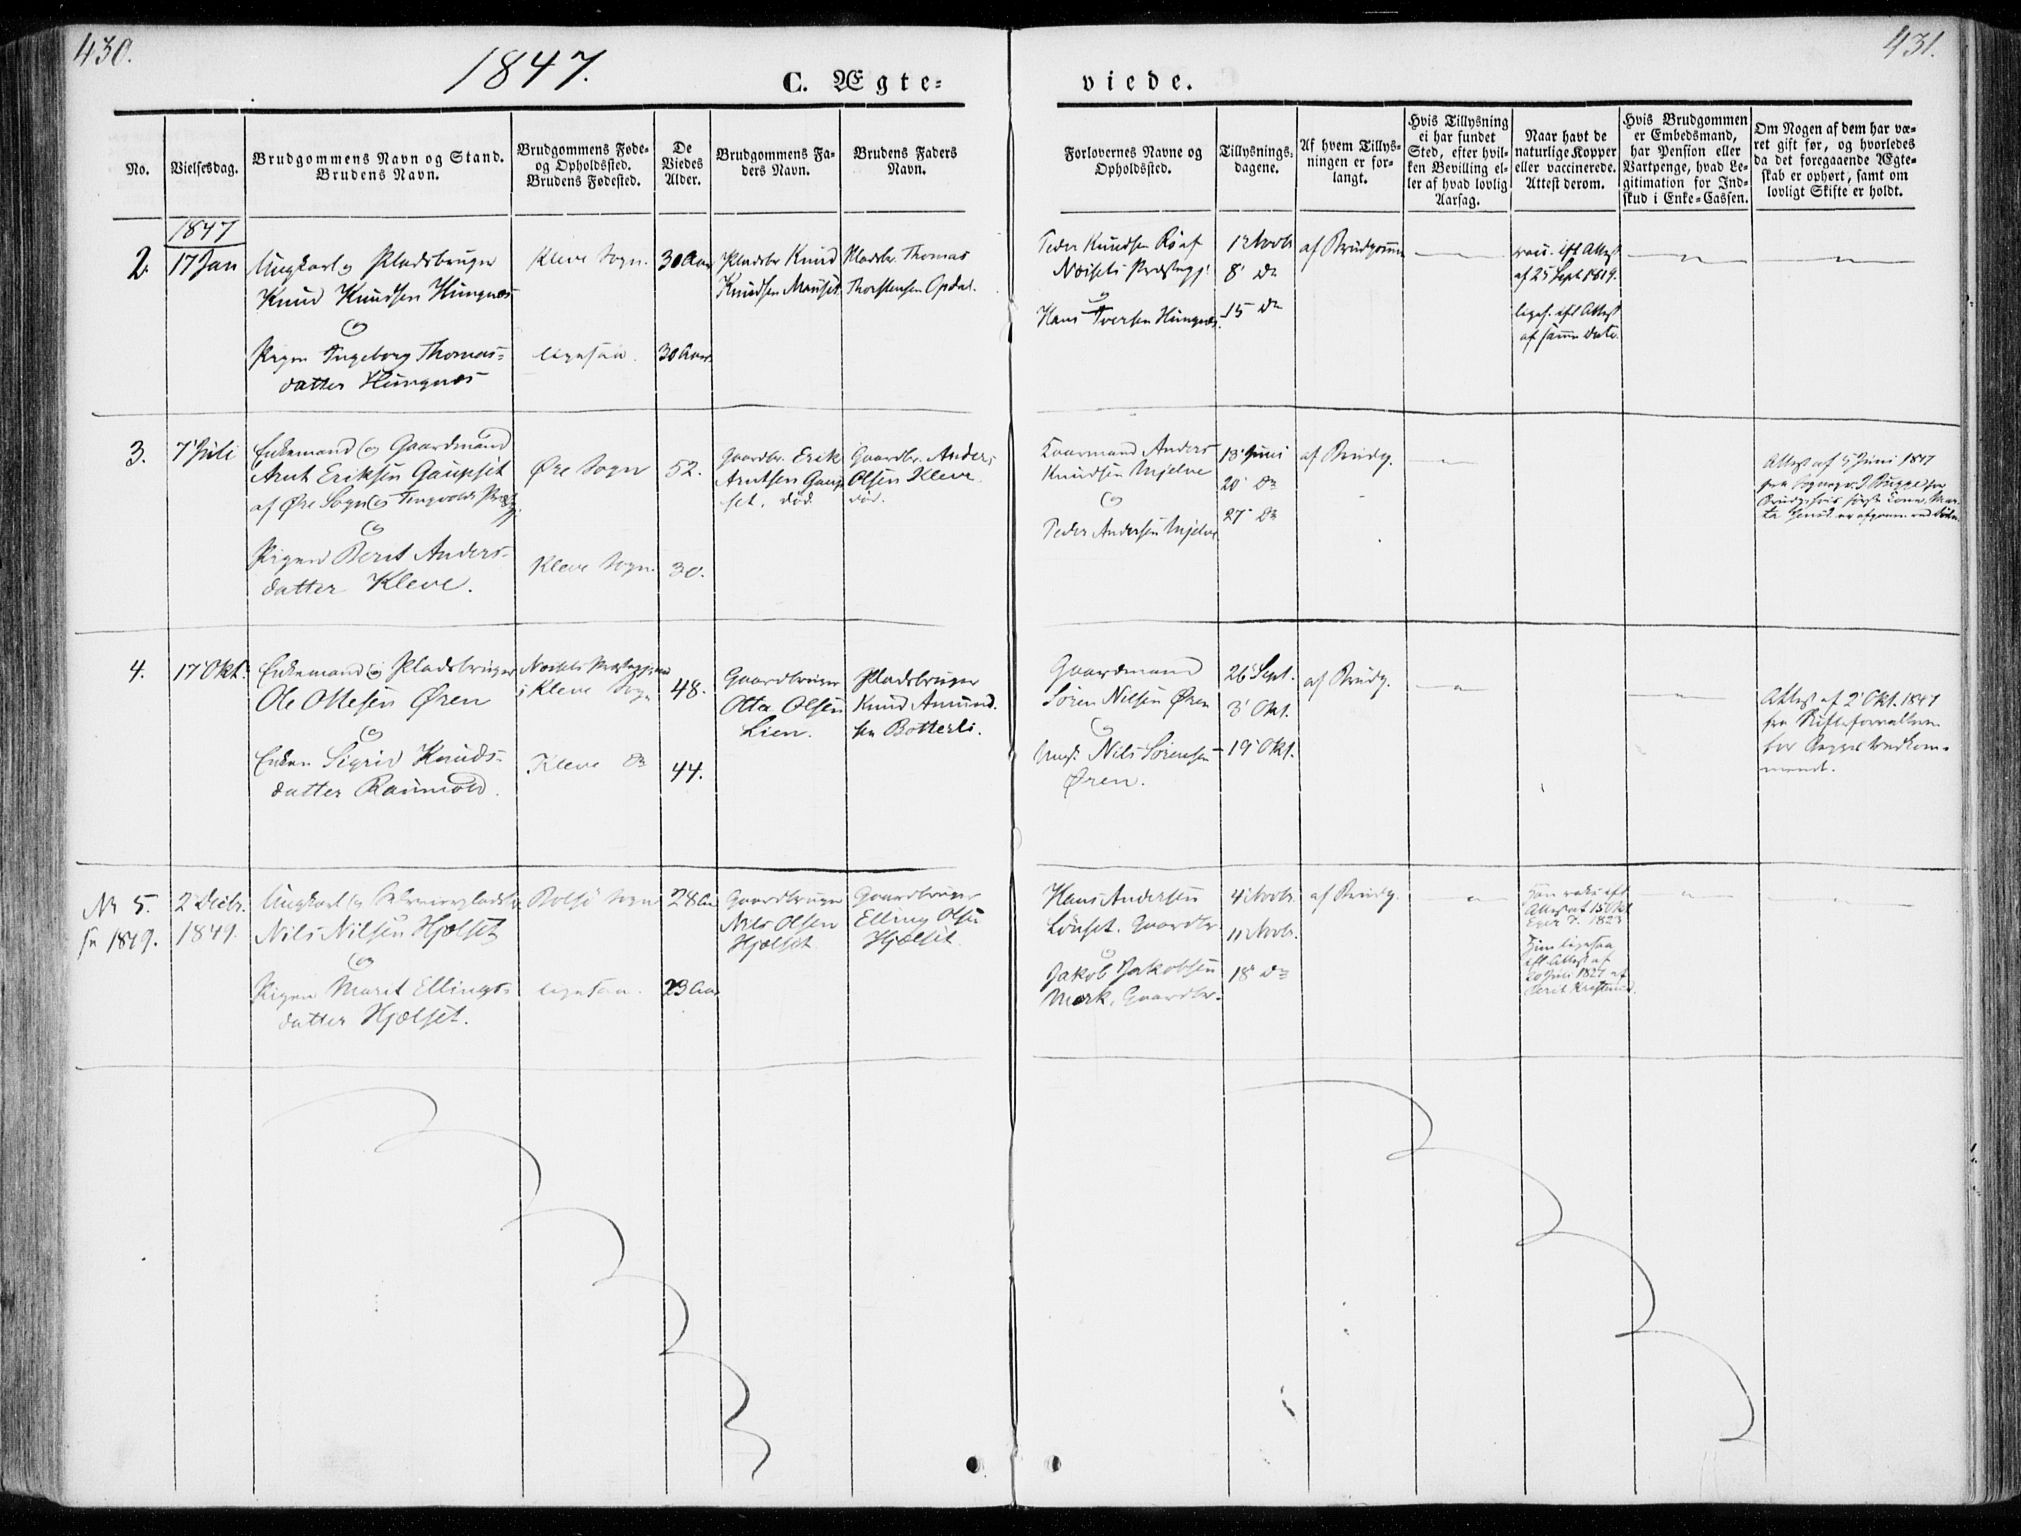 430.
1847.
C. Ægte=
viede.
431.
No.
Vielsesdag.
Brudgommens Navn og Stand.
Brudens Navn.
Brudgommens Føde=
og Opholdssted.
Brudens Fødested.
De
Viedes
Alder.
Brudgommens Fa=
ders Navn.
Brudens Faders
Navn.
Forlovernes Navne og
Opholdssted.
Tillysnings=
dagene.
Af hvem Tillys=
ningen er for=
langt.
Hvis Tillysning
ei har fundet
Sted, efter hvil=
ken Bevilling el=
ler af hvad lovlig
Aarsag.
Naar havt de
naturlige Kopper
eller vaccinerede.
Attest derom.
Hvis Brudgommen
er Embedsmand,
har Pension eller
Vartpenge, hvad Le=
gitimation for Ind=
skud i Enke=Cassen.
Om Nogen af dem har væ=
ret gift før, og hvorledes
da det foregaaende Ægte=
skab er ophørt, samt om
lovligt Skifte er holdt.
1847
2.
17 Jan
Ungkarl og Pladsbruger
Knud Knudsen Hungnes
og
Pigen Ingeborg Thomas=
datter Hungnes
Kleve Sogn.
ligesaa.
30 Aar
30 Aar
Pladsbr. Knud
Knudsen Mauset
Pladsbr. Thomas
Thorstensen Opdal.
Peder Knudsen Rø af
Nøisets Præstegj.
og
Hans Iversen Hungnes.
1 Novb
8' do
15 do
af Brudgomm
vacc. eft. Attest
af 25 Sept. 1819.
liges. eft Attest
af samme Dato.
3.
7' Juli
Enkemand og Gaardmand
Arnt Eriksen Gaupset
af Øre Sogn og Tingvolds Præstgj.
og
Pigen Berit Anders=
datter Kleve.
Øre Sogn
Kleve Sogn.
52.
30.
Gaardbr. Erik
Arntsen Gaup
set. død.
Gaardbr. Anders
Olsen Kleve.
død.
Gaarmand Anders
Knudsen Mjelve
og
Peder Andersen Mjelve
13' Juni
20' do
27' do
af Brudg.
Attest af 5 Juni 1847
4.
17 Okt.
Enkemand og Pladsbruger
Ole Ottesen Øren
og
Enken Sigrid Knuds=
datter Raumold.
i Kleve Sogn
Kleve do
48.
44.
Gaardbruger
Otte Olsen
Lien.
Pladsbruger
Knud Amund
sen Botterli.
Gaardmand
Søren Nilsen Øren
og
Ungk. Nils Sørensen
Øren.
26 Sept.
3' Okt.
19' Okt.
af Brudg.
Attest af 2' Okt. 1847
fra Skifteforvalteren
for
Nr 5.
for 1849.
2 Decbr.
1849.
Ungkarl og
Nils Nilsen Hjelset
og
Pigen Marit Ellings=
datter Hjelset.
Bolsø Sogn
ligesaa.
28 Aa
23 Aa
Gaardbruger
Nils Olsen
Hjelset
Gaardbruger
Elling Olsen
Hjelset.
Hans Andersen
Lønset. Gaardbr
og
Jakob Jakobsen
Mork, Gaardbr.
4 Novbr.
11 Novbr.
18' do
af Brudg.
Han vac. eft
Attest af 15 Okt
1823
Hun ligesaa
eft. Attest af
20 Juli 1827 af